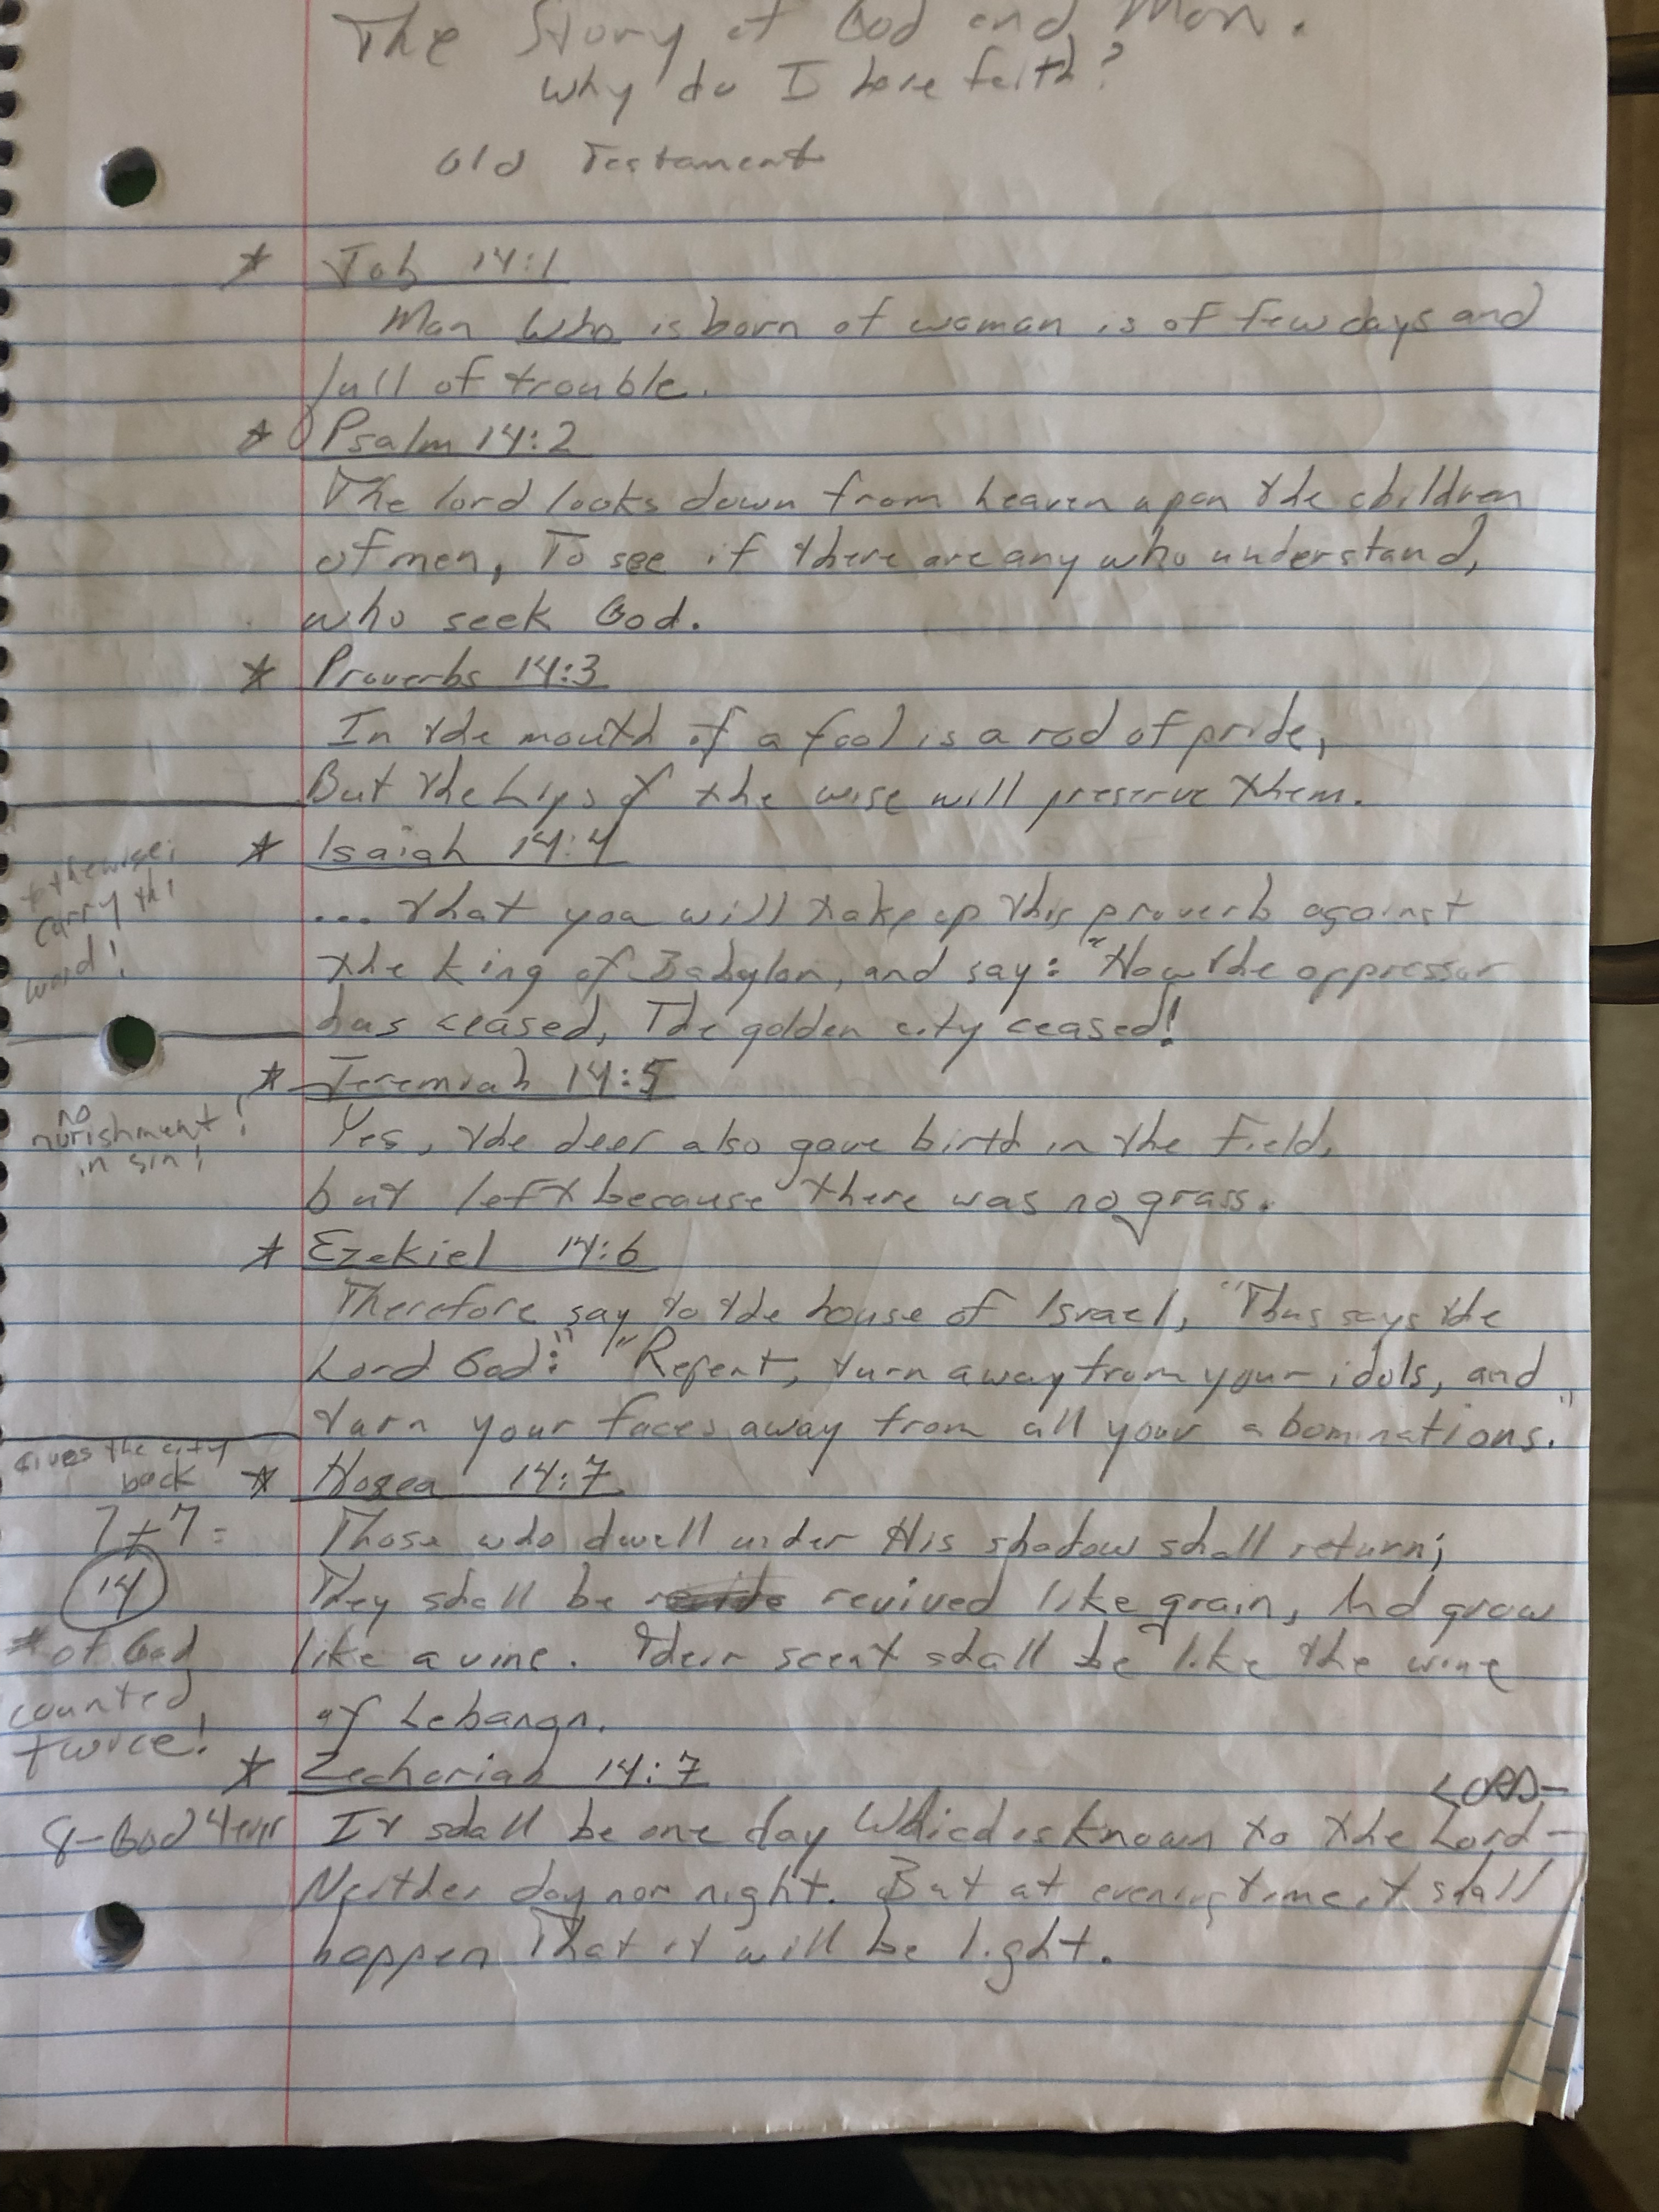 The Story of God and Man.
Why do I have faith?
Old Testament
* Job 14:1
Man who is born of woman is of few days and
full of trouble.
* Psalm 14:2
The lord looks down from heaven upon the children
of men, To see if there are any who understand,
who seek God.
* Proverbs 14:3
In the mouth of a fool is a rod of pride,
But the Lips of the wise will preserve them.
* Isaiah 14:4
othewise;
carry thi
word!
... that you will take up this proverb against
the king of Babylon, and say: "How the oppressor
has ceased, The golden city ceased!
* Jeremiah 14:5
no
nurishment!
in sin!
Yes, the deer also gave birth in the field,
but left because there was no grass.
* Ezekiel 14:6
Therefore say to the house of Israel, "Thus says the
Lord God:" "Repent, turn away from your idols, and
turn your faces away from all your abominations."
Gives the city
back
* Hosea 14:7
7+7=
14
# of God
counted
twice!
Those who dwell under His shadow shall return;
They shall be revived like grain, And grow
like a vine. Their scent shall be like the wine
of Lebanon.
* Zechariah 14:7
LORD-
8-God 4ever
It shall be one day Which is known to the Lord-
Neither day nor night. But at evening time it shall
happen That it will be light.